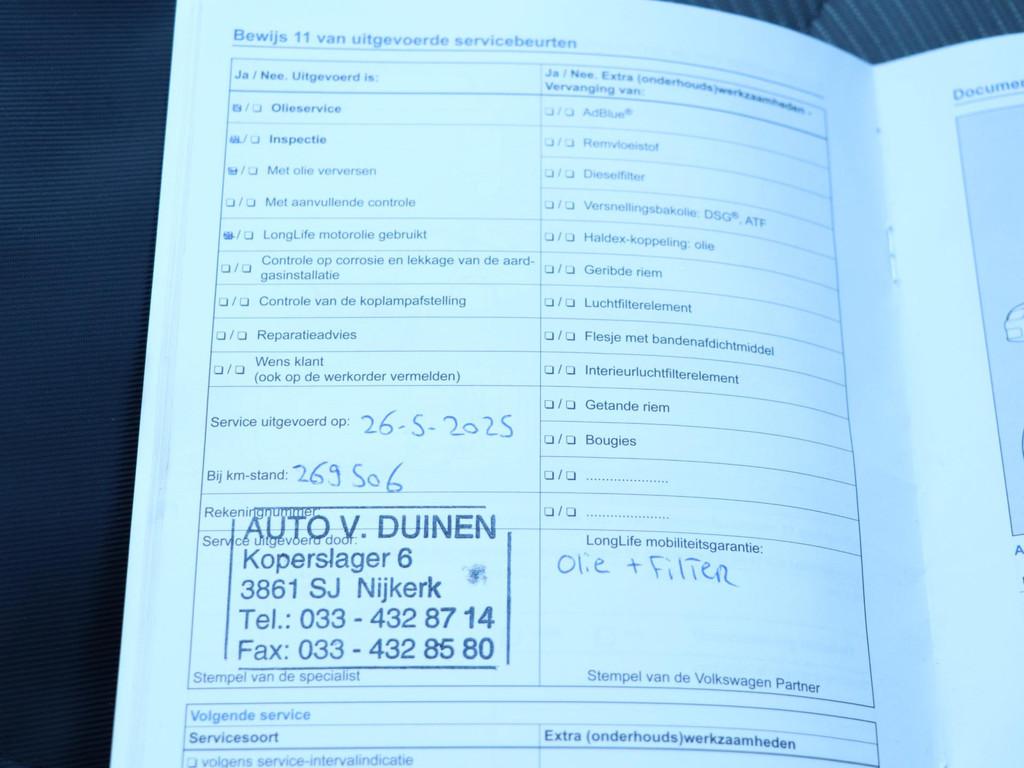 Bewijs 11 van uitgevoerde servicebeurten
Ja / Nee. Uitgevoerd is:
☒ / ☐ Olieservice
☒ / ☐ Inspectie
☒ / ☐ Met olie verversen
☐ / ☐ Met aanvullende controle
☒ / ☐ LongLife motorolie gebruikt
☐ / ☐ Controle op corrosie en lekkage van de aard-
gasinstallatie
☐ / ☐ Controle van de koplampafstelling
☐ / ☐ Reparatieadvies
☐ / ☐ Wens klant
(ook op de werkorder vermelden)
Service uitgevoerd op: 26-5-2025
Bij km-stand: 269506
Rekeningnummer:
Service uitgevoerd door:
AUTO V. DUINEN
Koperslager 6
3861 SJ Nijkerk
Tel.: 033 - 432 87 14
Fax: 033 - 432 85 80
Stempel van de specialist
Ja / Nee. Extra (onderhouds)werkzaamheden -
Vervanging van:
☐ / ☐ AdBlue®
☐ / ☐ Remvloeistof
☐ / ☐ Dieselfilter
☐ / ☐ Versnellingsbakolie: DSG®, ATF
☐ / ☐ Haldex-koppeling: olie
☐ / ☐ Geribde riem
☐ / ☐ Luchtfilterelement
☐ / ☐ Flesje met bandenafdichtmiddel
☐ / ☐ Interieurluchtfilterelement
☐ / ☐ Getande riem
☐ / ☐ Bougies
☐ / ☐ .....................
☐ / ☐ .....................
LongLife mobiliteitsgarantie:
Olie + FilTER
Stempel van de Volkswagen Partner
Volgende service
Servicesoort
Extra (onderhouds)werkzaamheden
☐ volgens service-intervalindicatie